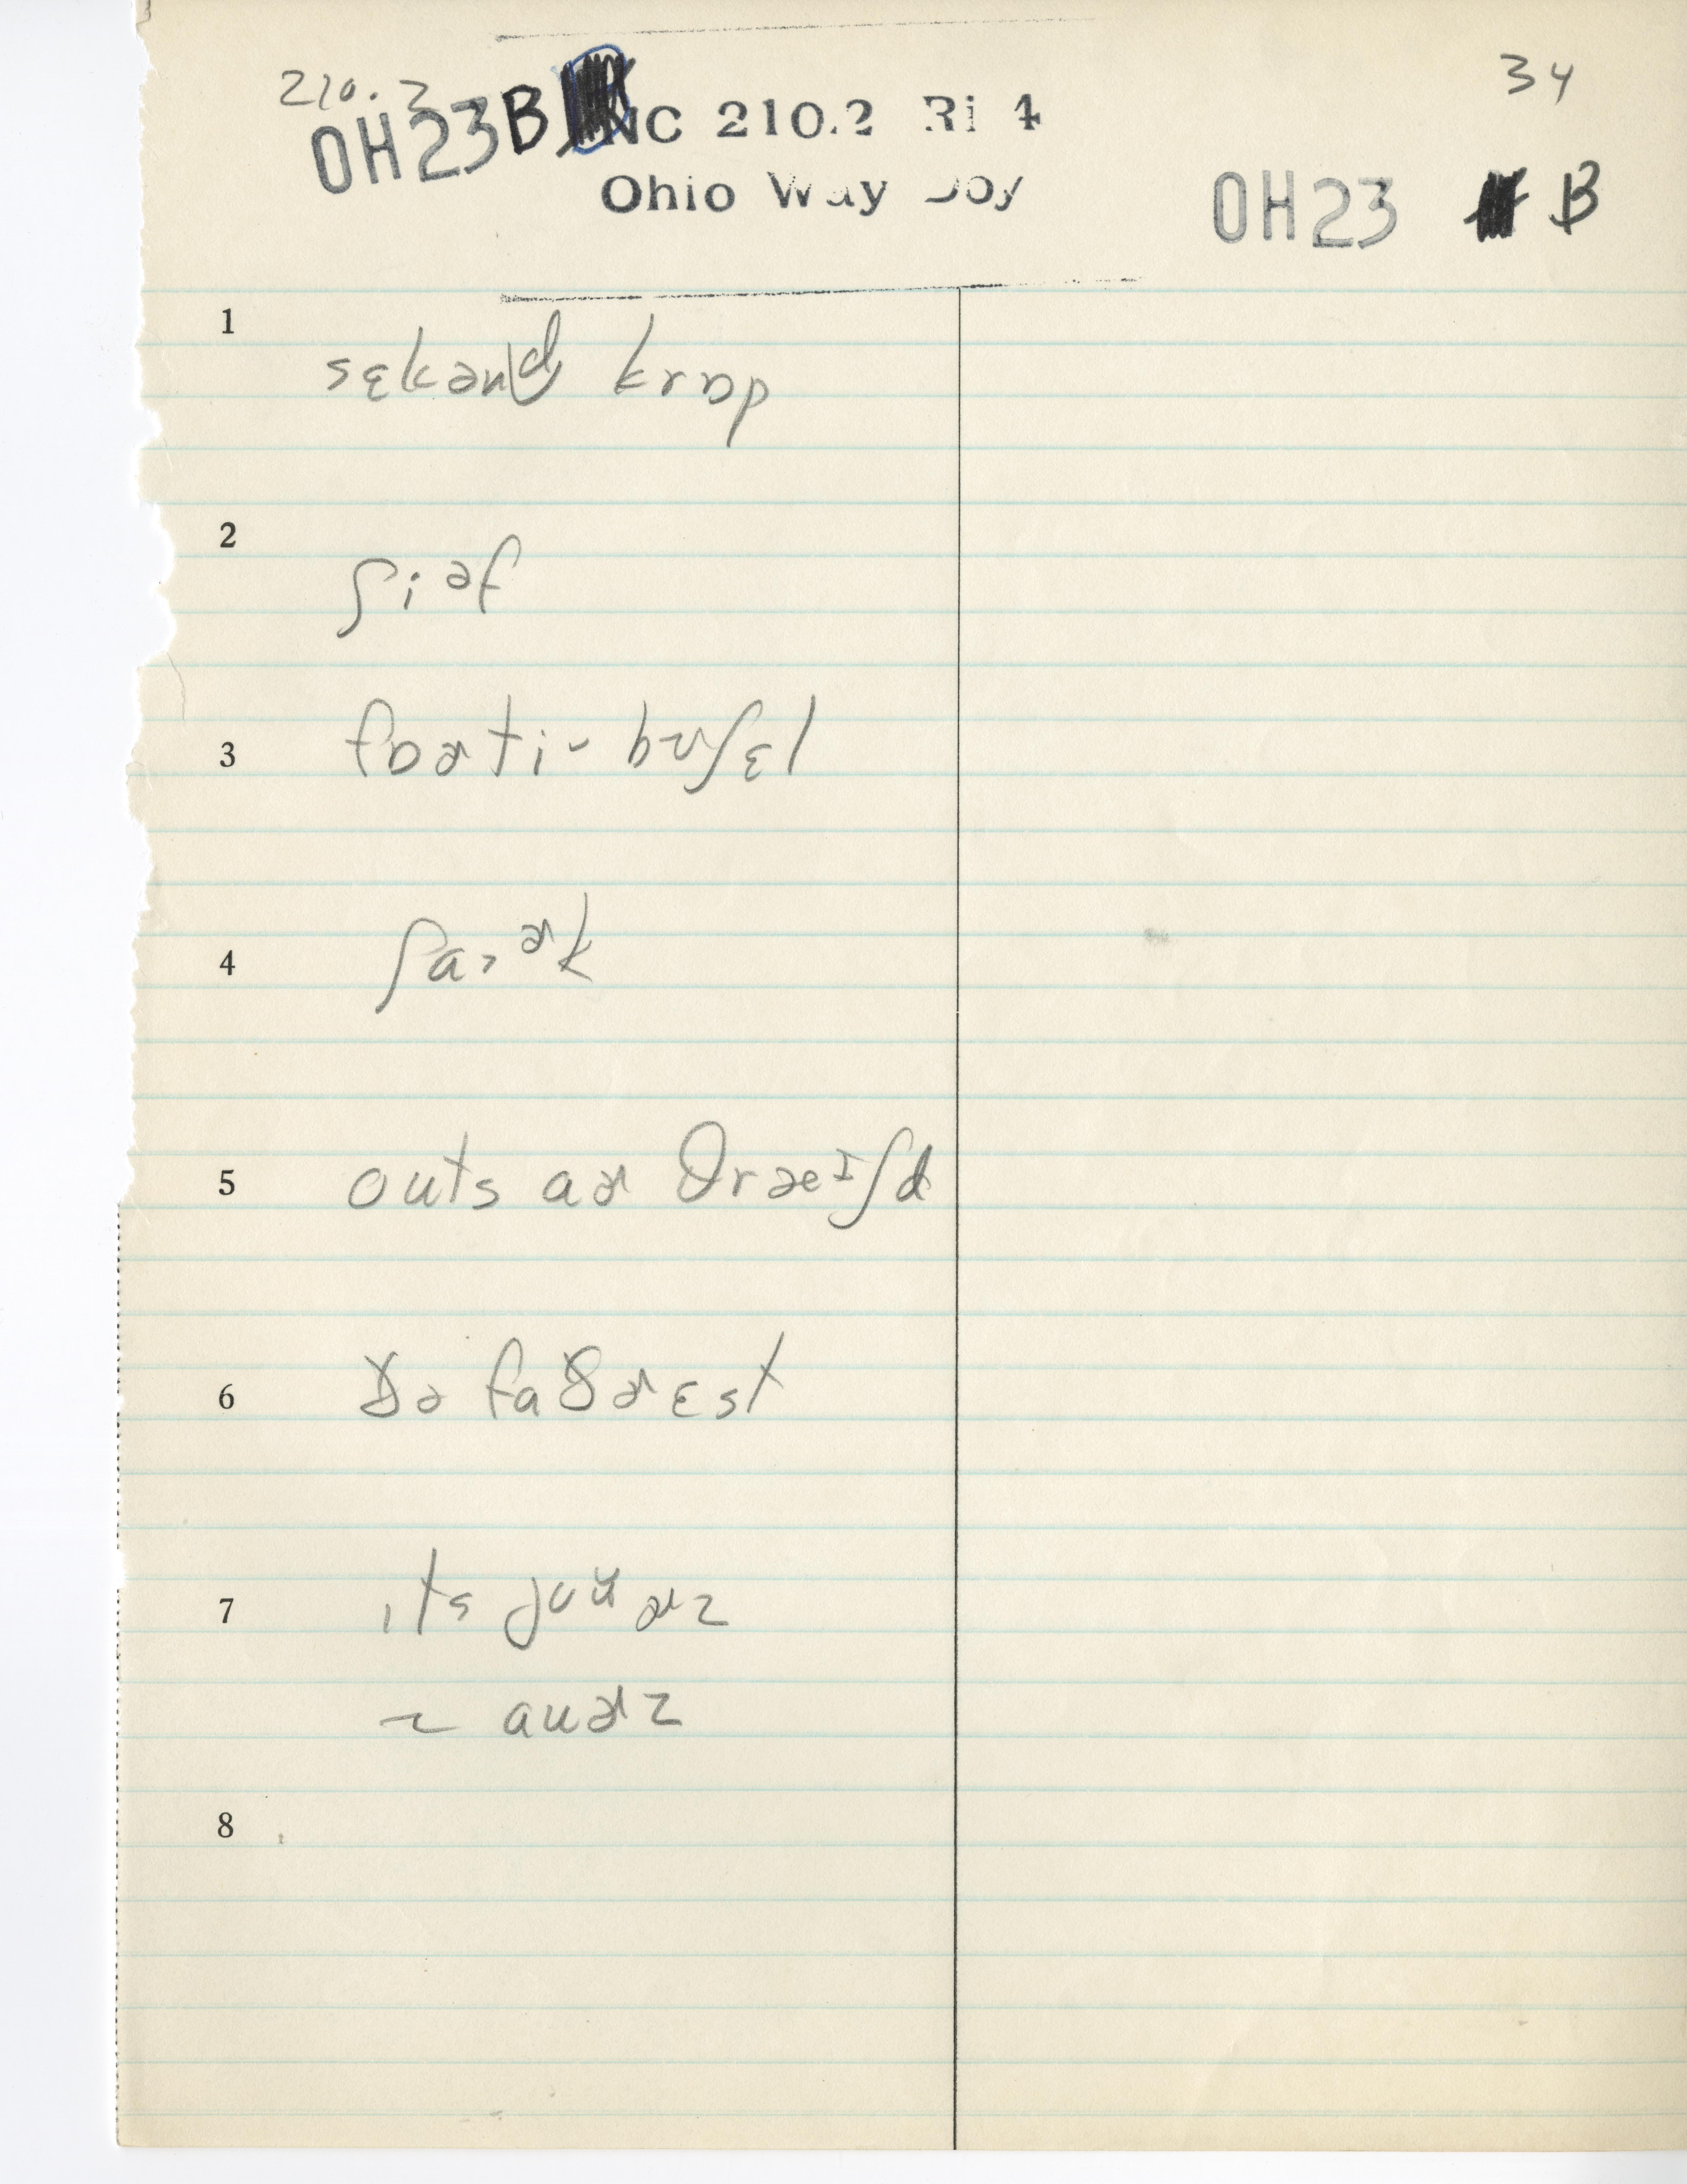 210.2
34
OH23B NC 210.2 Ri 4
Ohio Way Boy
OH23 B
1
sɛkənd krɒp
2
ʃiəf
3
fɒɚti- bʊʃɛl
4
ʃaˑɚk
5
outs aɚ θræɪʃd
6
ðə faðɚɛst
7
ɪts jʊuɚz
~ auɚz
8